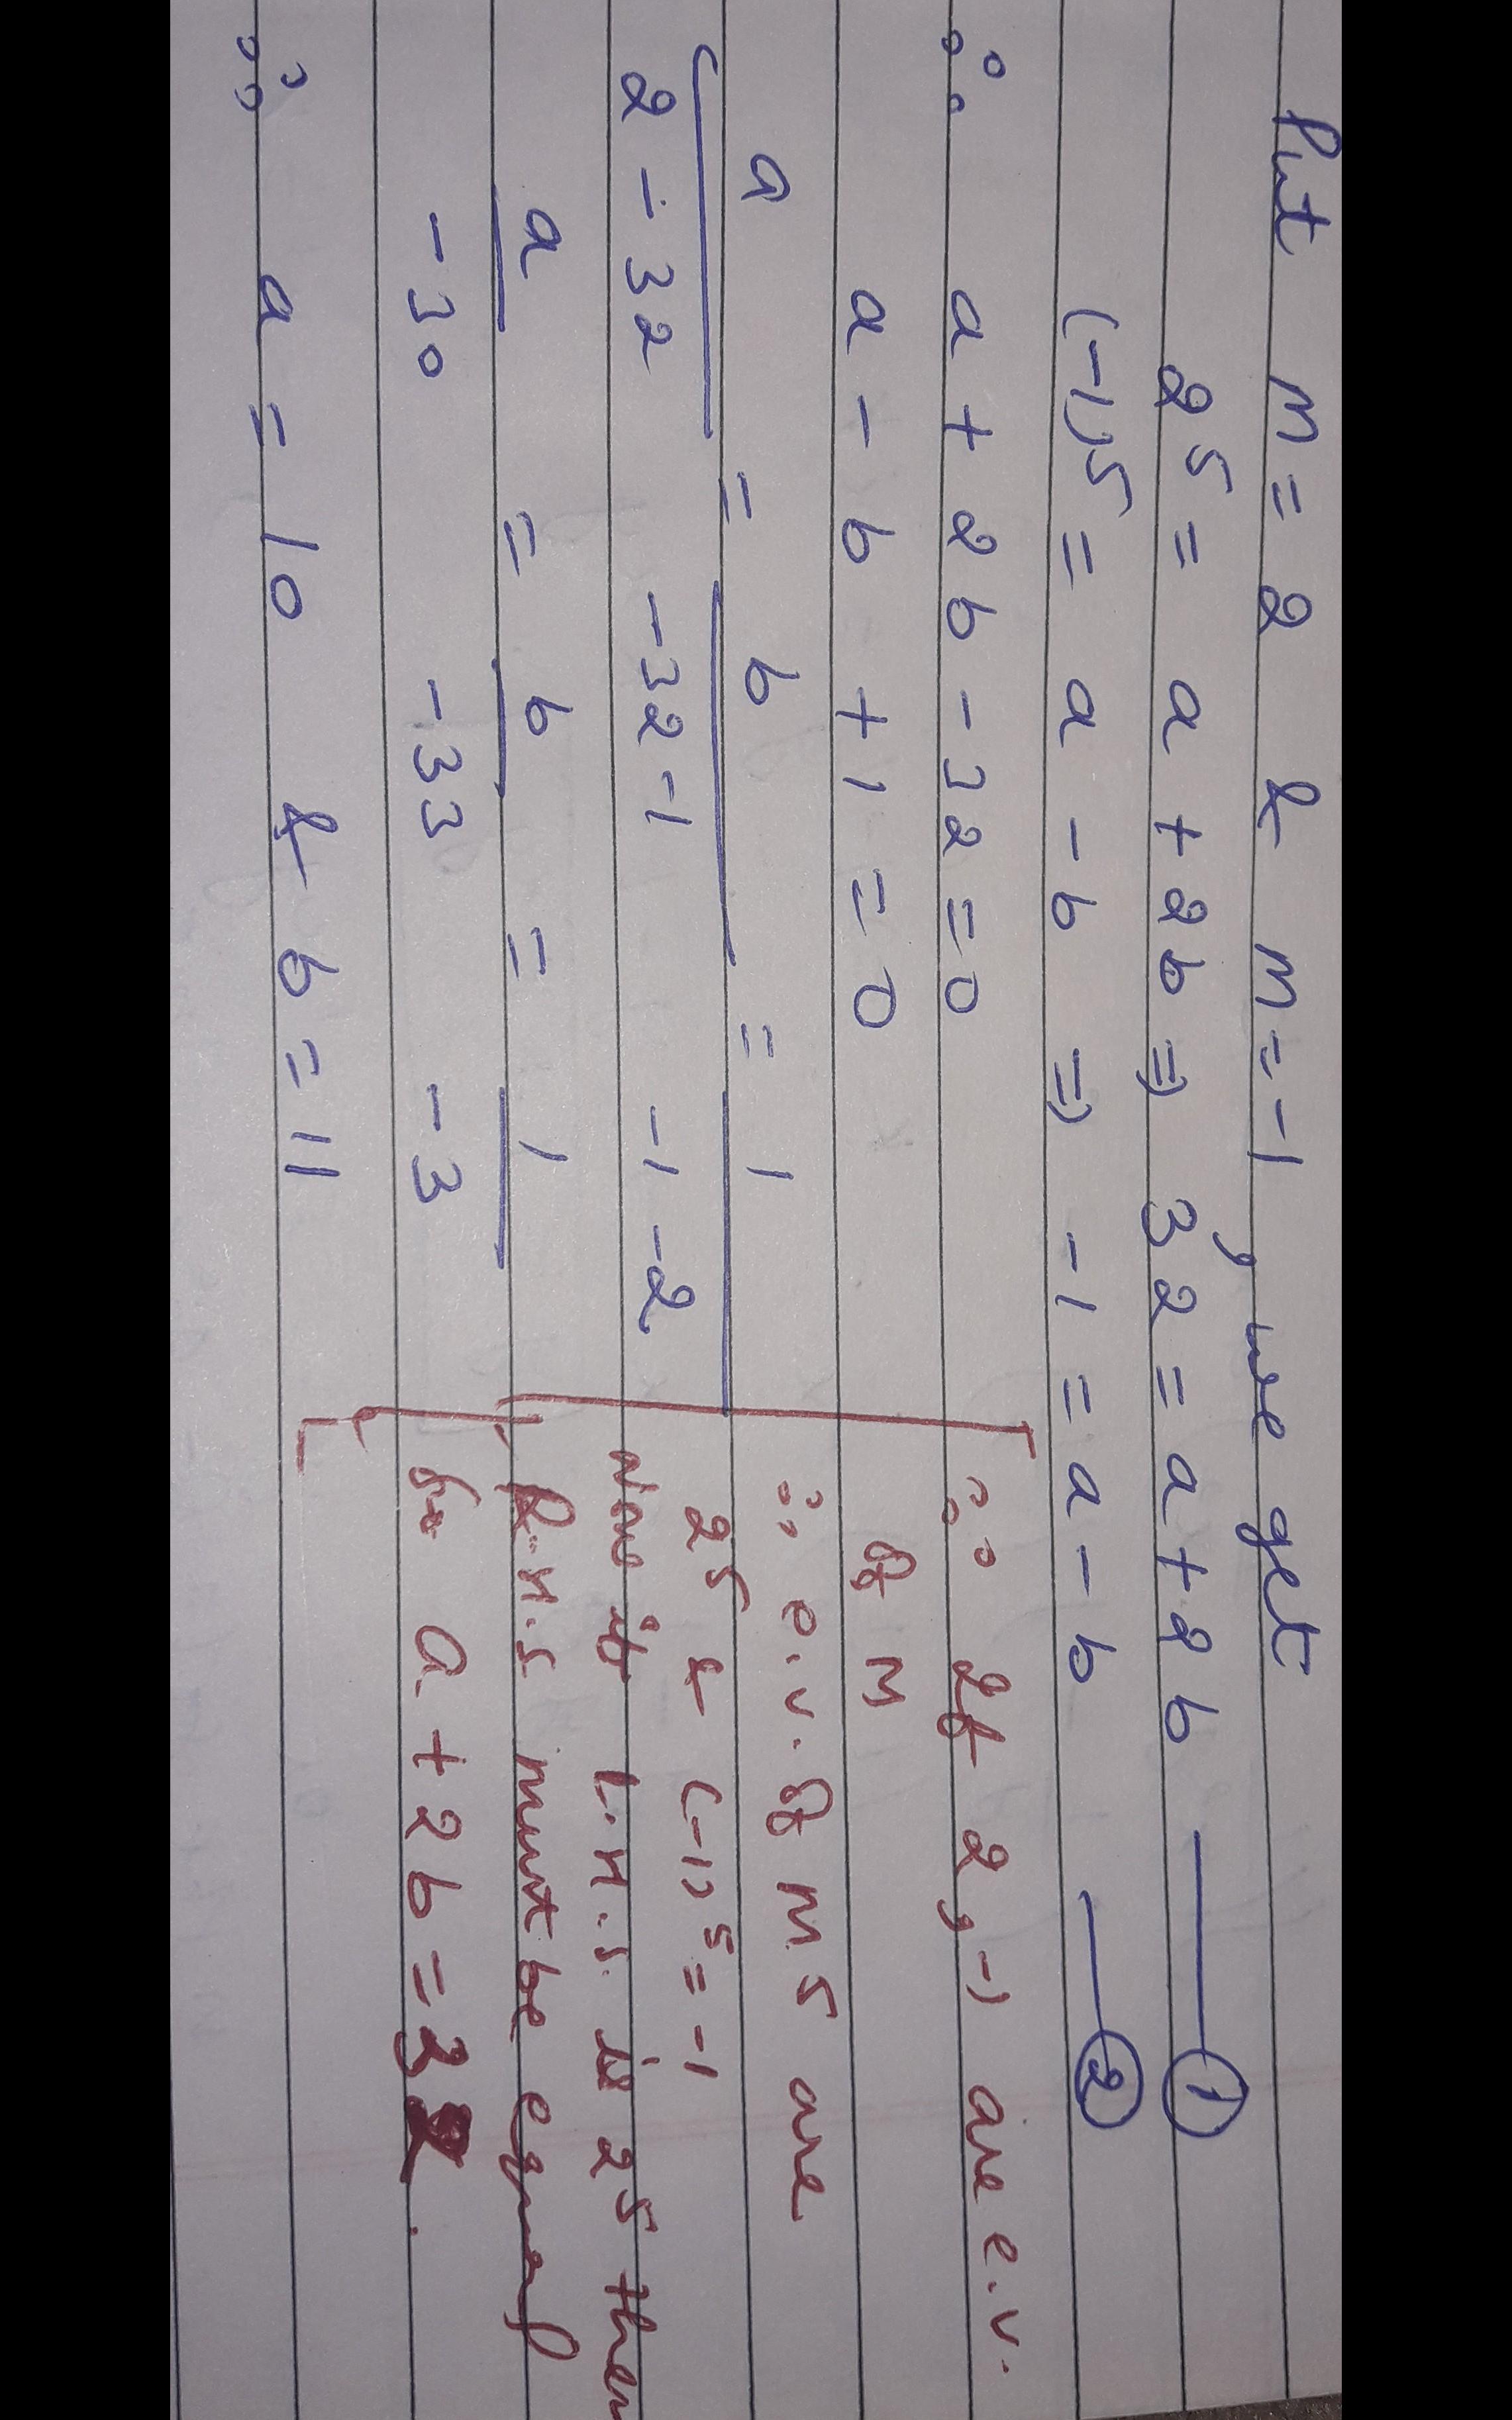 Put M = 2 & M = -1, we get
2⁵ = a + 2b ⇒ 32 = a + 2b — ①
(-1)⁵ = a - b ⇒ -1 = a - b — ②
∴ a + 2b - 32 = 0
a - b + 1 = 0
a/(2 - 32) = b/(-32 - 1) = 1/(-1 - 2)
a/-30 = b/-33 = 1/-3
∴ a = 10 & b = 11
∵ If 2, -1 are e.v.
of M
∴ e.v. of M5 are
2⁵ & (-1)⁵ = -1
Now if L.H.S. is 2⁵ then
R.H.S must be equal
a + 2b = 32.